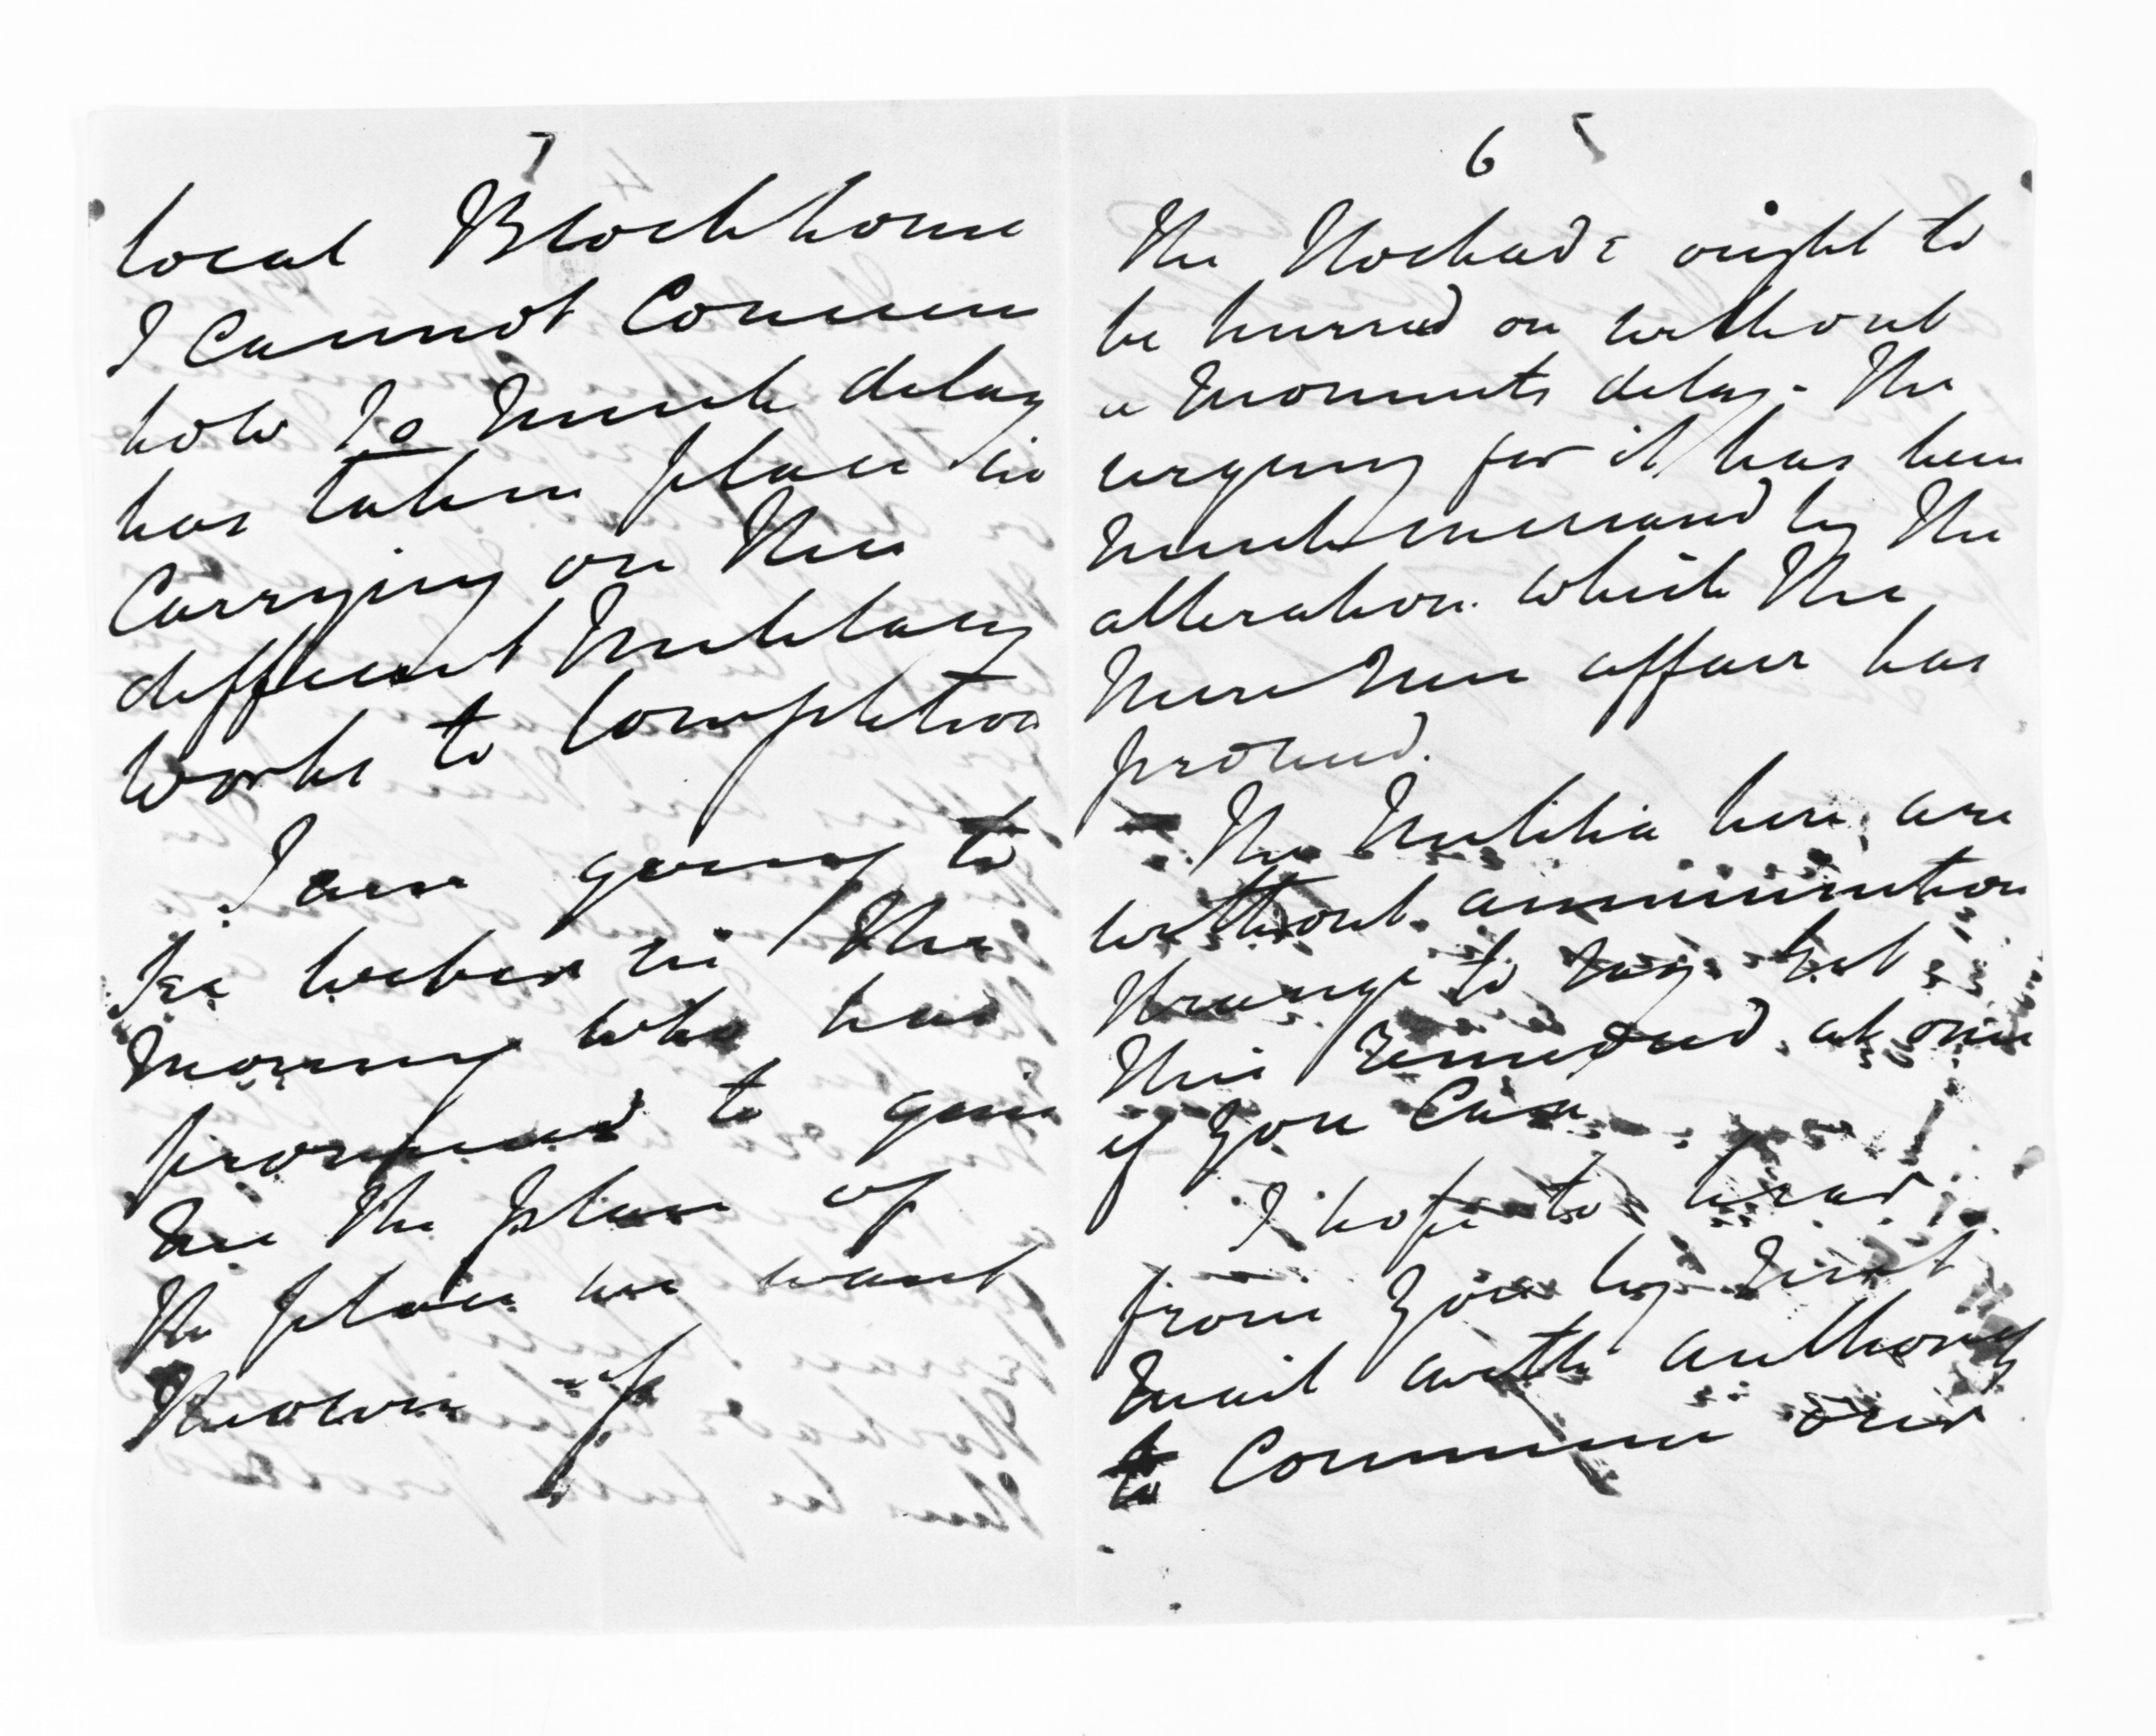 6
The Stockade ought to
be hurried on without
a moments delay. The
urgency for it has been
much increased by the
alteration which the
Mere Mere affair has
produced.
The Militia here are
without ammunition
strange to say get
this remedied at once
if you can
I hope to hear
from you by first
mail with authority
to Commence our
7
local Blockhouse
I cannot Conceive
how so much delay
has taken place in
Carrying on these
different Military
works to Completion
I am going to
see Weber in the
morning who has
promised to give
me the plan of
the place we want
thrown up